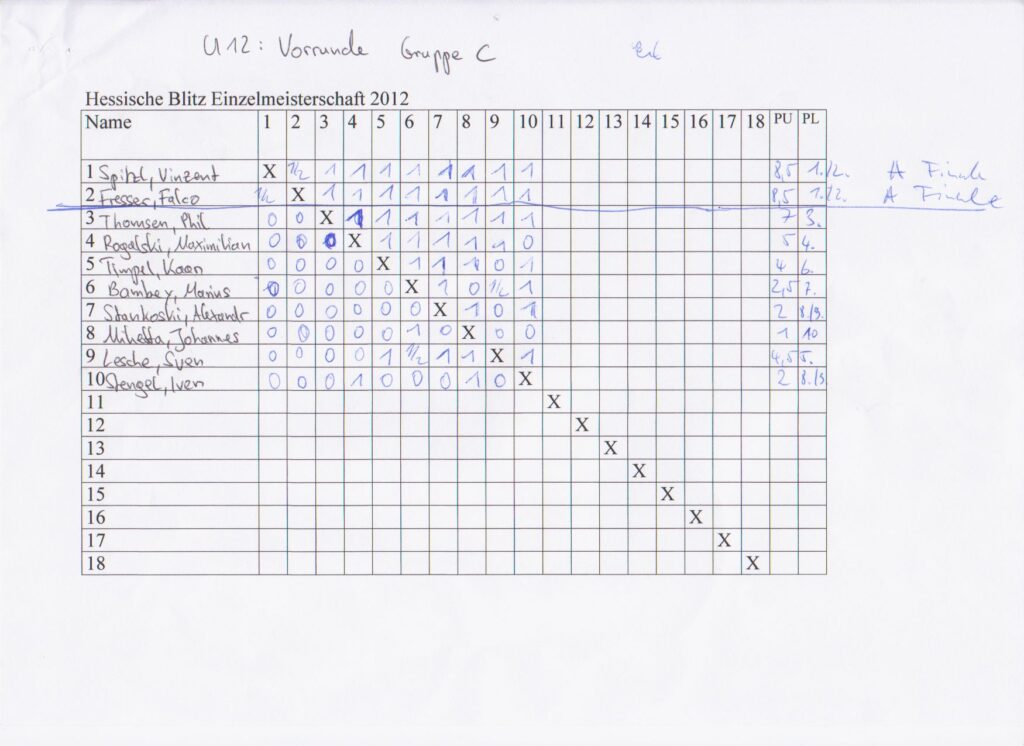 U12: Vorrunde Gruppe C
Hessische Blitz Einzelmeisterschaft 2012
Name 1 2 3 4 5 6 7 8 9 10 11 12 13 14 15 16 17 18 PU PL
1 Spitzl, Vinzent X 1/2 1 1 1 1 1 1 1 1 8,5 1./2. A Finale
2 Fresser, Falco 1/2 X 1 1 1 1 1 1 1 1 8,5 1./2. A Finale
3 Thomsen, Phil 0 0 X 1 1 1 1 1 1 1 7 3.
4 Rogalski, Maximilian 0 0 0 X 1 1 1 1 1 0 5 4.
5 Timpel, Kaan 0 0 0 0 X 1 1 1 0 1 4 6.
6 Bambey, Marius 0 0 0 0 0 X 1 0 1/2 1 2,5 7.
7 Stankoski, Alexandr 0 0 0 0 0 0 X 1 0 1 2 8./9.
8 Johannes 0 0 0 0 0 1 0 X 0 0 1 10
9 Lesche, Sven 0 0 0 0 1 1/2 1 1 X 1 4,5 5.
10 Stengel, Iven 0 0 0 1 0 0 0 1 0 X 2 8./9.
11 X
12 X
13 X
14 X
15 X
16 X
17 X
18 X